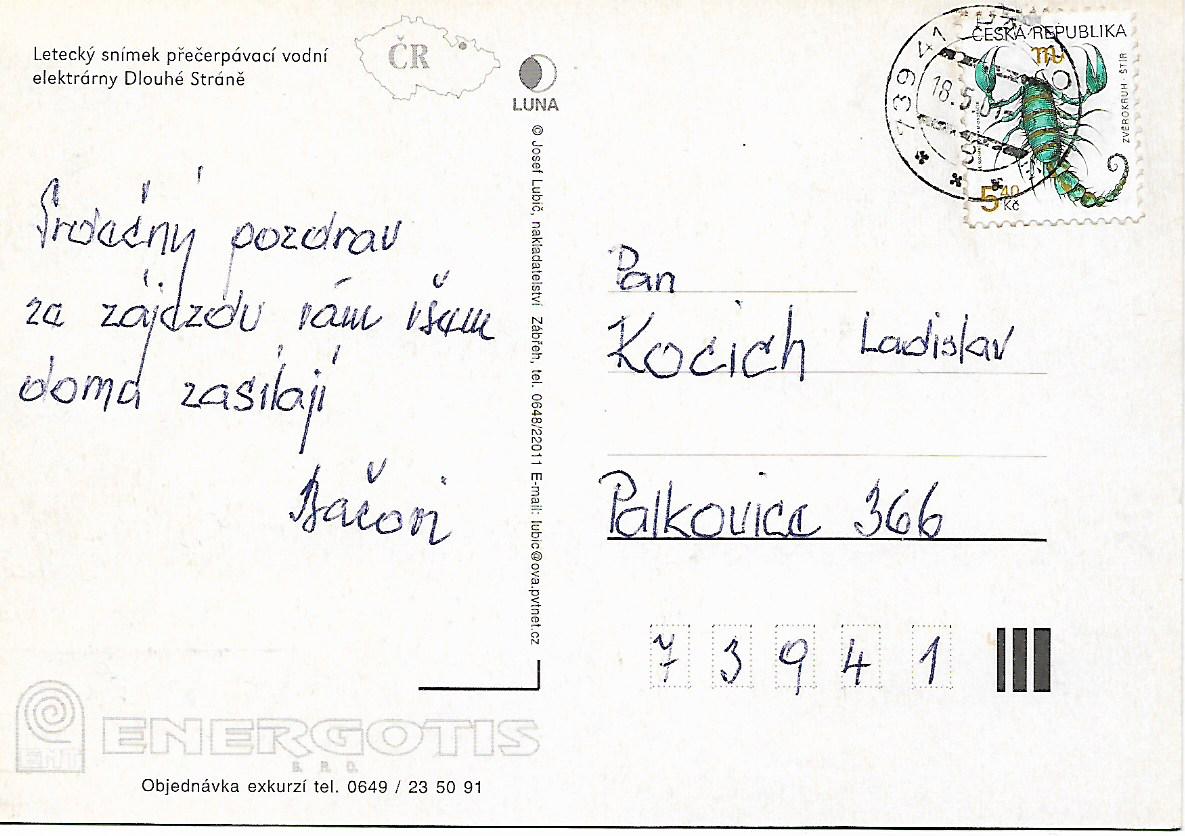 Letecký snímek přečerpávací vodní
elektrárny Dlouhé Stráně
ČR
LUNA
© Josef Lubič, nakladatelství Zábřeh, tel. 0648/22011 E-mail: lubic@ova.pvtnet.cz
Srdečný pozdrav
ze zájezdu vám všem
doma zasílají
Bačovi
ČESKÁ REPUBLIKA
ZVĚROKRUH · ŠTÍR
5 40 Kč
739 41
18.5.01
Pan
Kocich Ladislav
Palkovice 366
7 3 9 4 1
ENERGOTIS
S. R. O.
Objednávka exkurzí tel. 0649 / 23 50 91